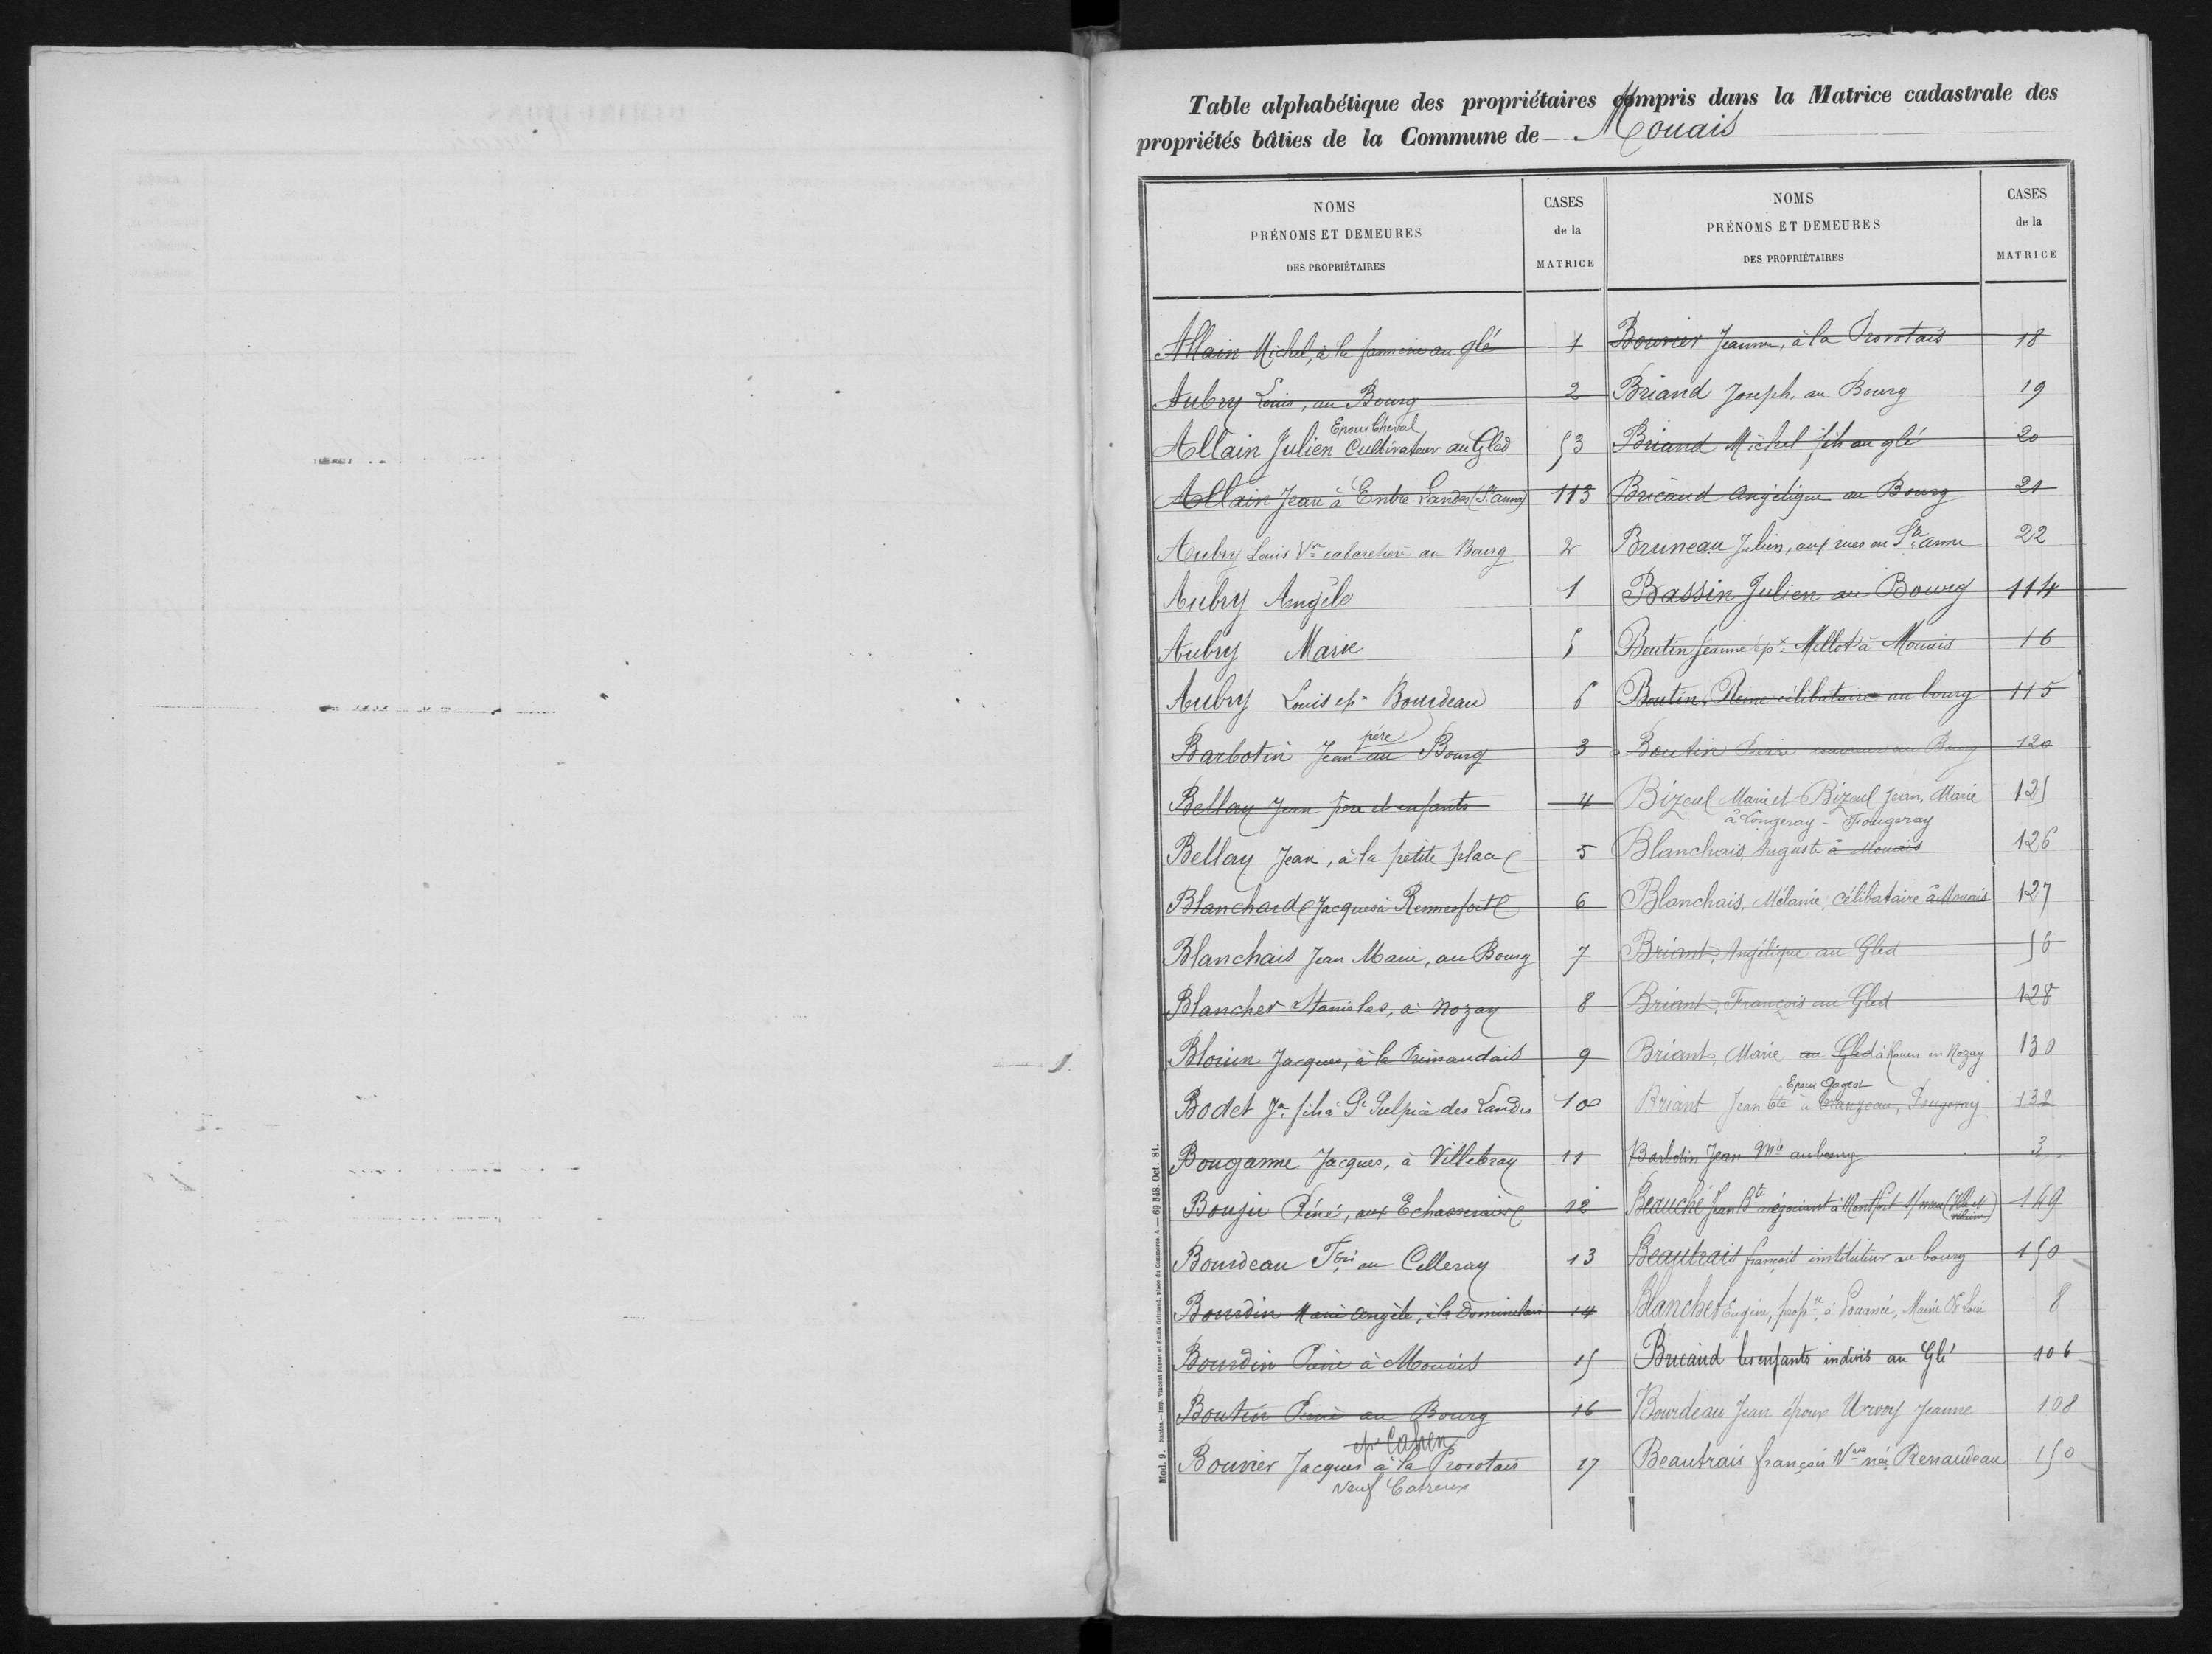 Table alphabétique des propriétaires compris dans la Matrice cadastrale des
propriétés bâties de la Commune de Mouais
NOMS
PRÉNOMS ET DEMEURES
DES PROPRIÉTAIRES
CASES
de la
MATRICE
Allain Michel, à la au glé 1
Aubry Louis, au Bourg 2
Epoux Cheval
Allain Julien Cultivateur au Gled 53
Allain Jean à Entre-Landes (Ste anne) 113
Aubry Louis Vve cabaretière au Bourg 2
Aubry Angèle 1
Aubry Marie 5
Aubry Louis ep. Bourdeau 6
père
Barbotin Jean au Bourg 3
Bellay Jean père et enfants 4
Bellay Jean, à la petite place 5
Blanchard Jacques à Rennefort 6
Blanchais Jean Marie, au Bourg 7
Blancher Stanislas, à Nozay 8
Blouin Jacques, à la Primaudais 9
Bodet Jn fils à St Sulpice des Landes 10
Bouganne Jacques, à Villebray 11
Bouju Réné, aux Echasseraire 12
Bourdeau Fçois au Celleray 13
Bourdin Marie Angèle, à la Dominelais 14
Bourdin Pierre à Mouais 15
Boutin Pierre au Bourg 16
ep. Cahen
Bouvier Jacques à la Provotais 17
Veuf Catreux
NOMS
PRÉNOMS ET DEMEURES
DES PROPRIÉTAIRES
CASES
de la
MATRICE
Bouvier Jeanne, à la Provotais 18
Briand Joseph, au Bourg 19
Briand Michel fils au glé 20
Bricaud Angélique au Bourg 21
Bruneau Julien, aux rues en Ste anne 22
Bassin Julien au Bourg 114
Boutin Jeanne épx Mellot à Mouais 16
Boutin Reine célibataire au bourg 115
Boutin Pierre couvreur au Bourg 120
Bizeul Marie et Bizeul Jean, Marie 125
à Longeray - Fougeray
Blanchais, Auguste à Mouais 126
Blanchais, Mélanie, célibataire à Mouais 127
Briant, Angélique au Gled 56
Briant, François au Gled 128
Briant, Marie au Gled à Rouen en Nozay 130
Epoux Gageot
Briant Jean Bte à Cranzeau, Fougeray 132
Barbotin Jean Mie au bourg 3
Beauché Jean Bte négociant à Montfort s/ meu (Ille et
Vilaine) 149
Beautrais françois instituteur au bourg 150
Blanchet Eugène, propre à Pouancé, Maine & Loire 8
Bricaud les enfants indivis au Glé 106
Bourdeau Jean époux Urvoy Jeanne 108
Beautrais françois Vve née Renaudeau 150
Mod. 9. Nantes.— Imp. Vincent Forest et Émile Grimaud, place du Commerce, 4. — 69 348. Oct. 81.